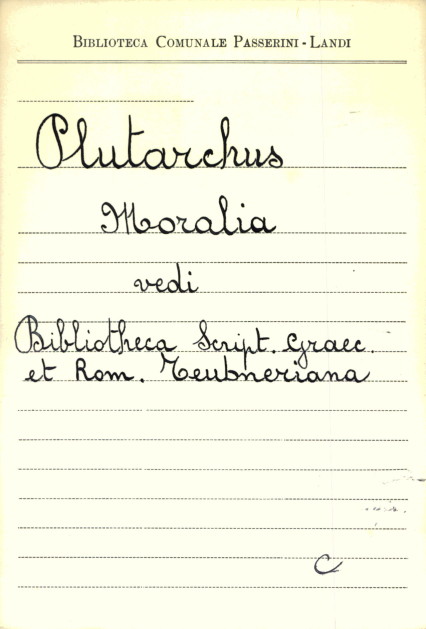 BIBLIOTECA COMUNALE PASSERINI - LANDI
Plutarchus
Moralia
vedi
Bibliotheca Script. Graec.
et Rom. Teubneriana
C